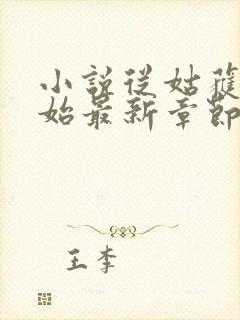 小說從姑獲
始最新章節
王李